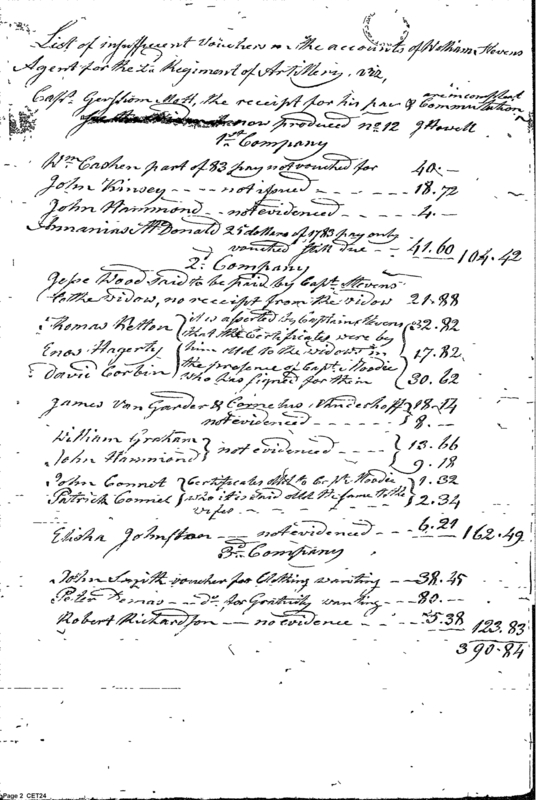 List of insufficient Vouchers in the accounts of William Stevens
Agent for the 2d Regiment of Artillery. viz,
Capt. Gershom Mott, the receipt for his pay & Commutation
are incompleat
now produced no. 12 J Howell
1st Company
Wm Cashen part of 83 pay not vouched for 40.—
John Kinsey - - - - not signed - - - 18.72
John Hammond - not evidenced - - - 4.—
Annanias McDonald 25 dollars of 1783 pay only
vouched still due - - 41.60 104.42
2d Company
Jesse Wood said to be paid by Capt. Stevens
to the widow, no receipt from the widow 21.88
Thomas Ketton { it is asserted by Captain Stevens } 32.82
that the Certificates were by
Enos Hagerty { him dld to the widows in } 17.82
the presence of Capt. Moodie
David Corbin who has signed for them 30.62
James Van Garder & Cornelius Vanderhoff } 18.14
not evidenced - - - - } 8.—
William Graham } not evidenced - - - - } 13.66
John Hammond 9.18
John Connet { Certificates dld to Capt. Moodie } 1.32
Patrick Connel { who it is said dld the same to the } 2.34
wifes - - -
Elisha Johnston — not evidenced - - - 6.21 162.49
3d Company
John Smith voucher for Clothing wanting - - 38.45
Peter — do. for Gratuity wanting - - 80.—
Robert Richardson — no evidence - - - 5.38 123.83
390.84
Page 2 CET24